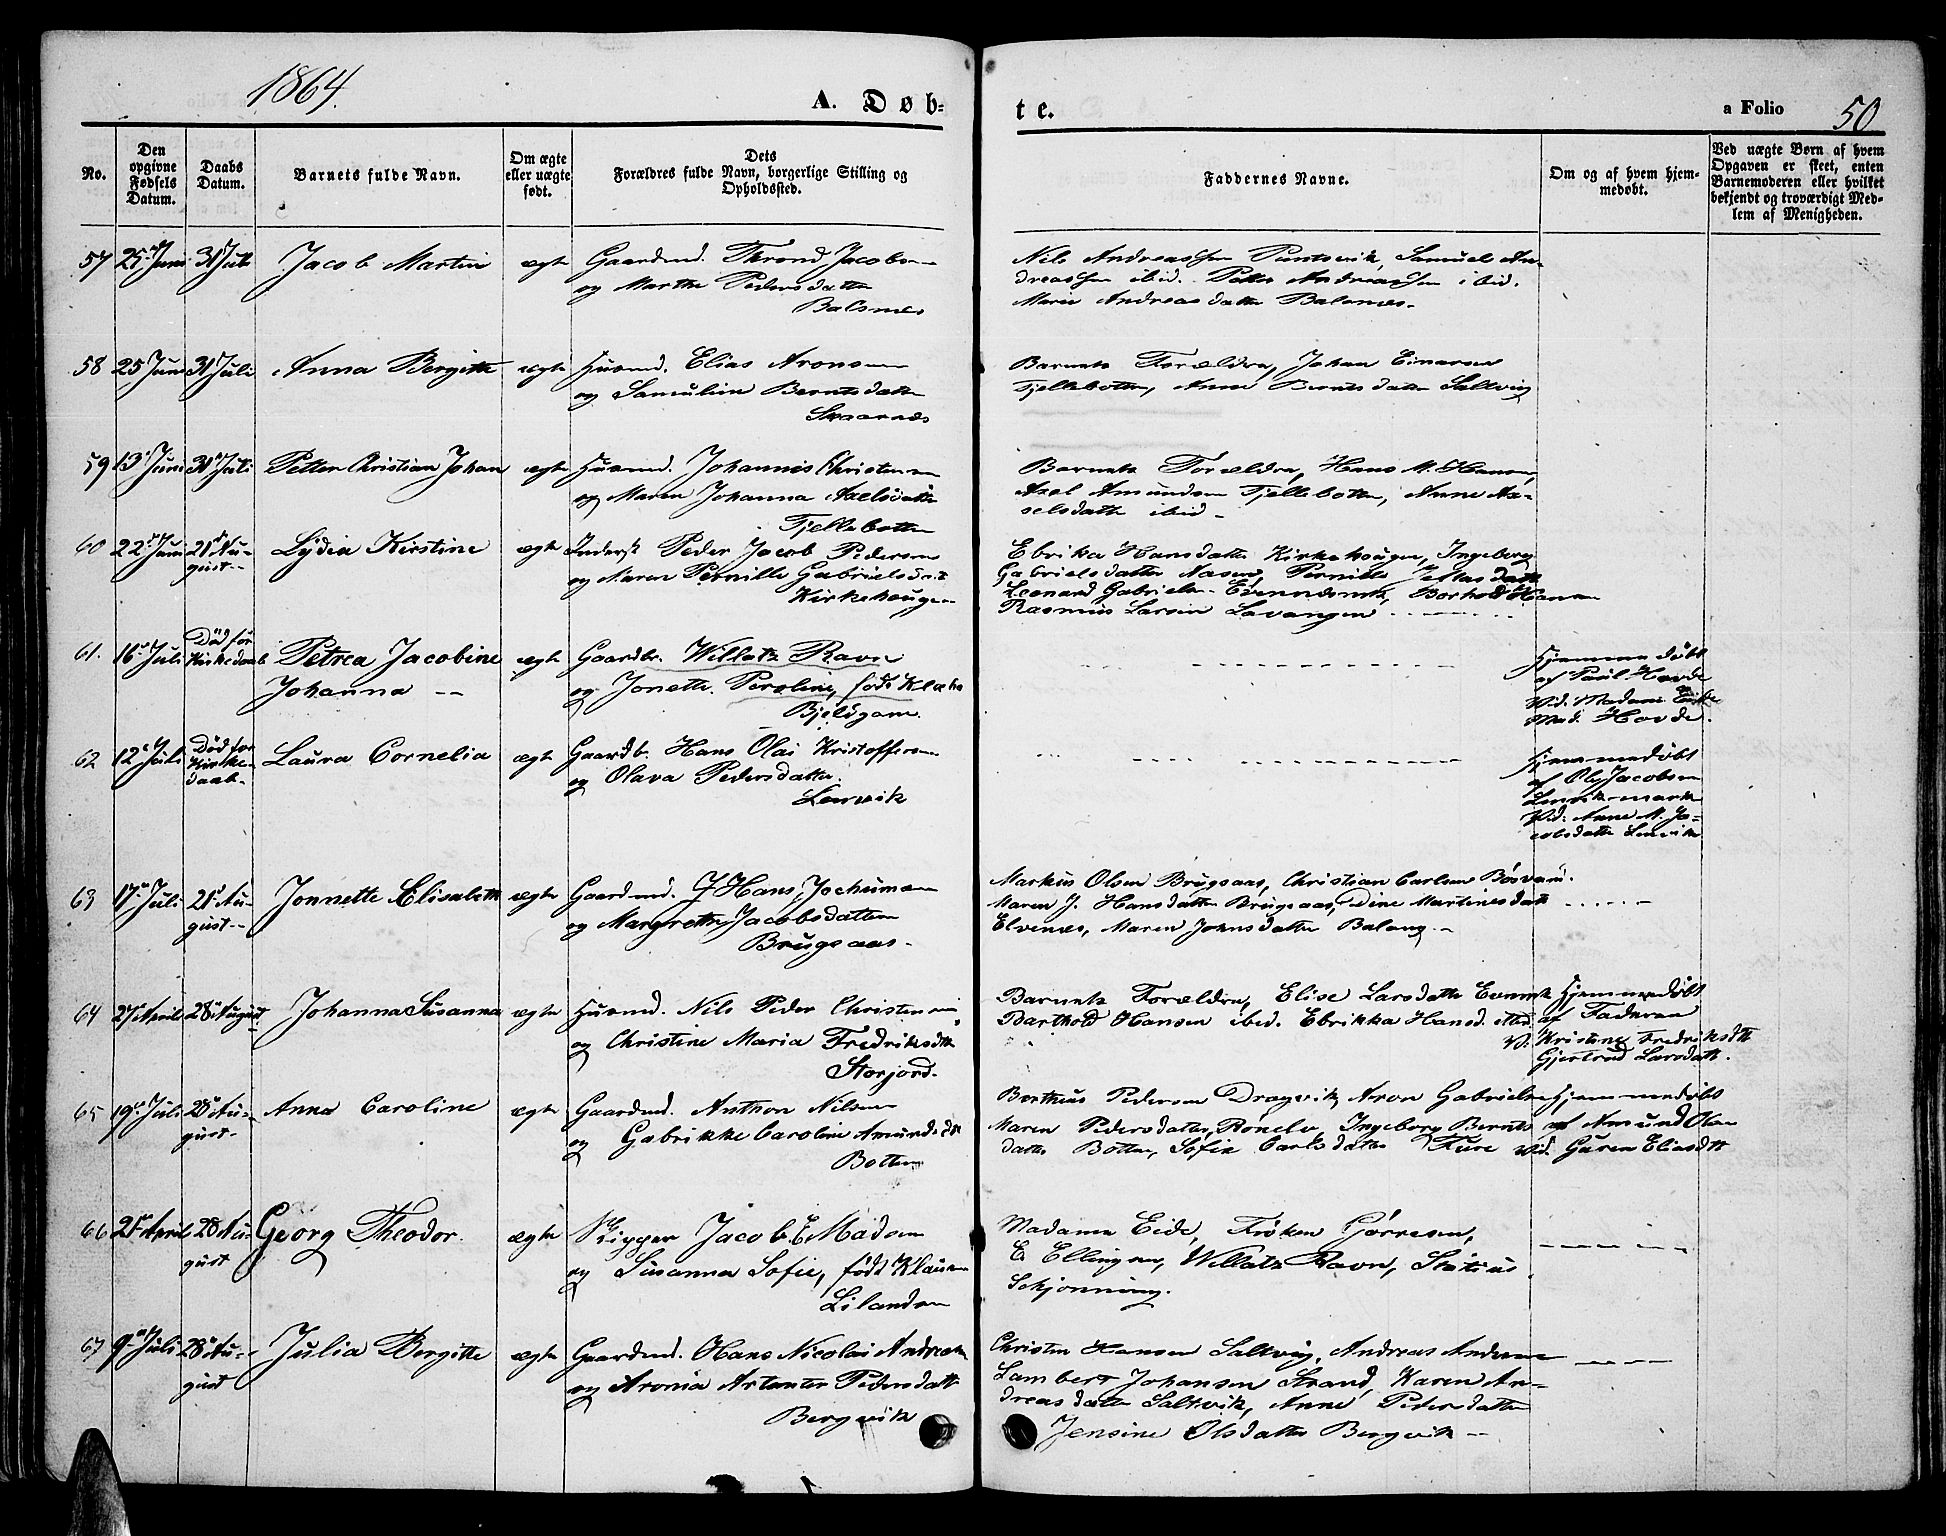 1864.
A. Døb-
te.
a Folio 50
No.
Den opgivne Fødsels Datum.
Daabs Datum.
Barnets fulde Navn.
Om ægte eller uægte født.
Dets Forældres fulde Navn, borgerlige Stilling og Opholdssted.
Faddernes Navne.
Om og af hvem hjemmedøbt.
Ved uægte Børn af hvem Opgaven er skeet, enten Barnemoderen eller hvilket bekjendt og troværdigt Medlem af Menigheden.
57 Juni 31 Juli Jacob Martin ægte Gaardmd. Thrond Jacobsen
og Marthe Pedersdatter
Balsnes
Nils Andreassen Samuel An-
dreassen ibid. Petter Andreassen ibid.
Marie Andreasdatter Balsnes.
58 25 Juni 31 Juli Anna Bergitte ægte Husmd. Elias Aronsen
og Samuline Berntsdatter
Skaarnes
Barnets Forældre, Johan Einarsen
Fjellebotten, Anne Berntsdatter Saltvig
59 13 Juni 31 Juli Petter Christian Johan ægte Husmd. Johannis Christensen
og Maren Johanna Axelsdatter
Fjellebotten
Barnets Forældre, Hans M. Hansen,
Axel Amundsen Fjellebotten, Anne Ax-
elsdatter ibid
60 22 Juni 21 Au-
gust Lydia Kirstine ægte Inderst Peder Jacob Pedersen
og Maren Pernille Gabrielsdat
Kirkehaugen
Ebrika Hansdatter Kirkehaugen, Ingeborg
Gabrielsdatter Pernille
Leonard Gabrielsen Evenesmark,
Rasmus Larsen Lavangen
61. 16 Juli Død før
Kirkedaab Petrea Jacobine
Johanna ægte Gaardbr. Willatz Ravn
og Jonette Peroline, født Klæbo
Bjeldgam.
Hjemmedøbt
af Paul Hovde
Vid. Madame
Mad. Hovde.
62 12 Juli Død før
Kirke-
daab Laura Cornelia ægte Gaardb. Hans Olai Kristoffersen
og Olava Pedersdatter
Lenvik
Hjemmedøbt
af Ole Jacobsen
Lenvikmark
Vid. Anne M. Ja-
cobsdatter Lenvik
63 17 Juli 21 Au-
gust Jonnette Elisabeth ægte Gaardmd. Hans Jochumsen
og Margrethe Jacobsdatter
Brugsaas
Markus Olsen Brugsaas, Christian Carlsen
Maren J. Hansdatter Brugsaas, Dine Martinesdatt
Elvenes, Maren Johnsdatter Balang
64 27 April 28 August Johanna Susanna ægte Husmd. Nils Peder Christensen
og Christine Maria Fredriksdtt
Storjord.
Barnets Forældre, Elise Larsdatter
Barthold Hansen ibid. Ebrikka Hansd.
Hjemmedøbt
af Faderen
V. Kristine Fredriksdtt
Gjertrud Larsdatt.
65 19 Juli 28 Au-
gust Anna Caroline ægte Gaardmd. Anthon Nilsen
og Gabrikke Caroline Amundsdtt
Botten
Bertheus Pedersen Dragvik, Aron Gabrielsen
Maren Pedersdatter Ingeborg Bernts-
datter Botten, Sofie Carlsdatter
Hjemmedøbt
af Amund Olsen
Vid. Guren Eliasdtt
66 21 April 28 Au-
gust Georg Theodor. ægte Skipper Jacob Madsen
og Susanna Sofie, født Klausen
Lilandsen
Madame Eide, Frøken Gørresen,
E Ellingsen, Willatz Ravn, Statius
Schjønning.
67 9 Juli 28 Au-
gust Julia Bergitte ægte Gaardmd. Hans Nicolai Andreasen
og Aronia Pedersdatt
Bergvik
Christen Hansen Saltvig, Andreas Andersen
Lambert Johansen Strand, Karen An-
dreasdatter Saltvik, Anne Pedersdatter
Jensine Olsdatter Bergvik